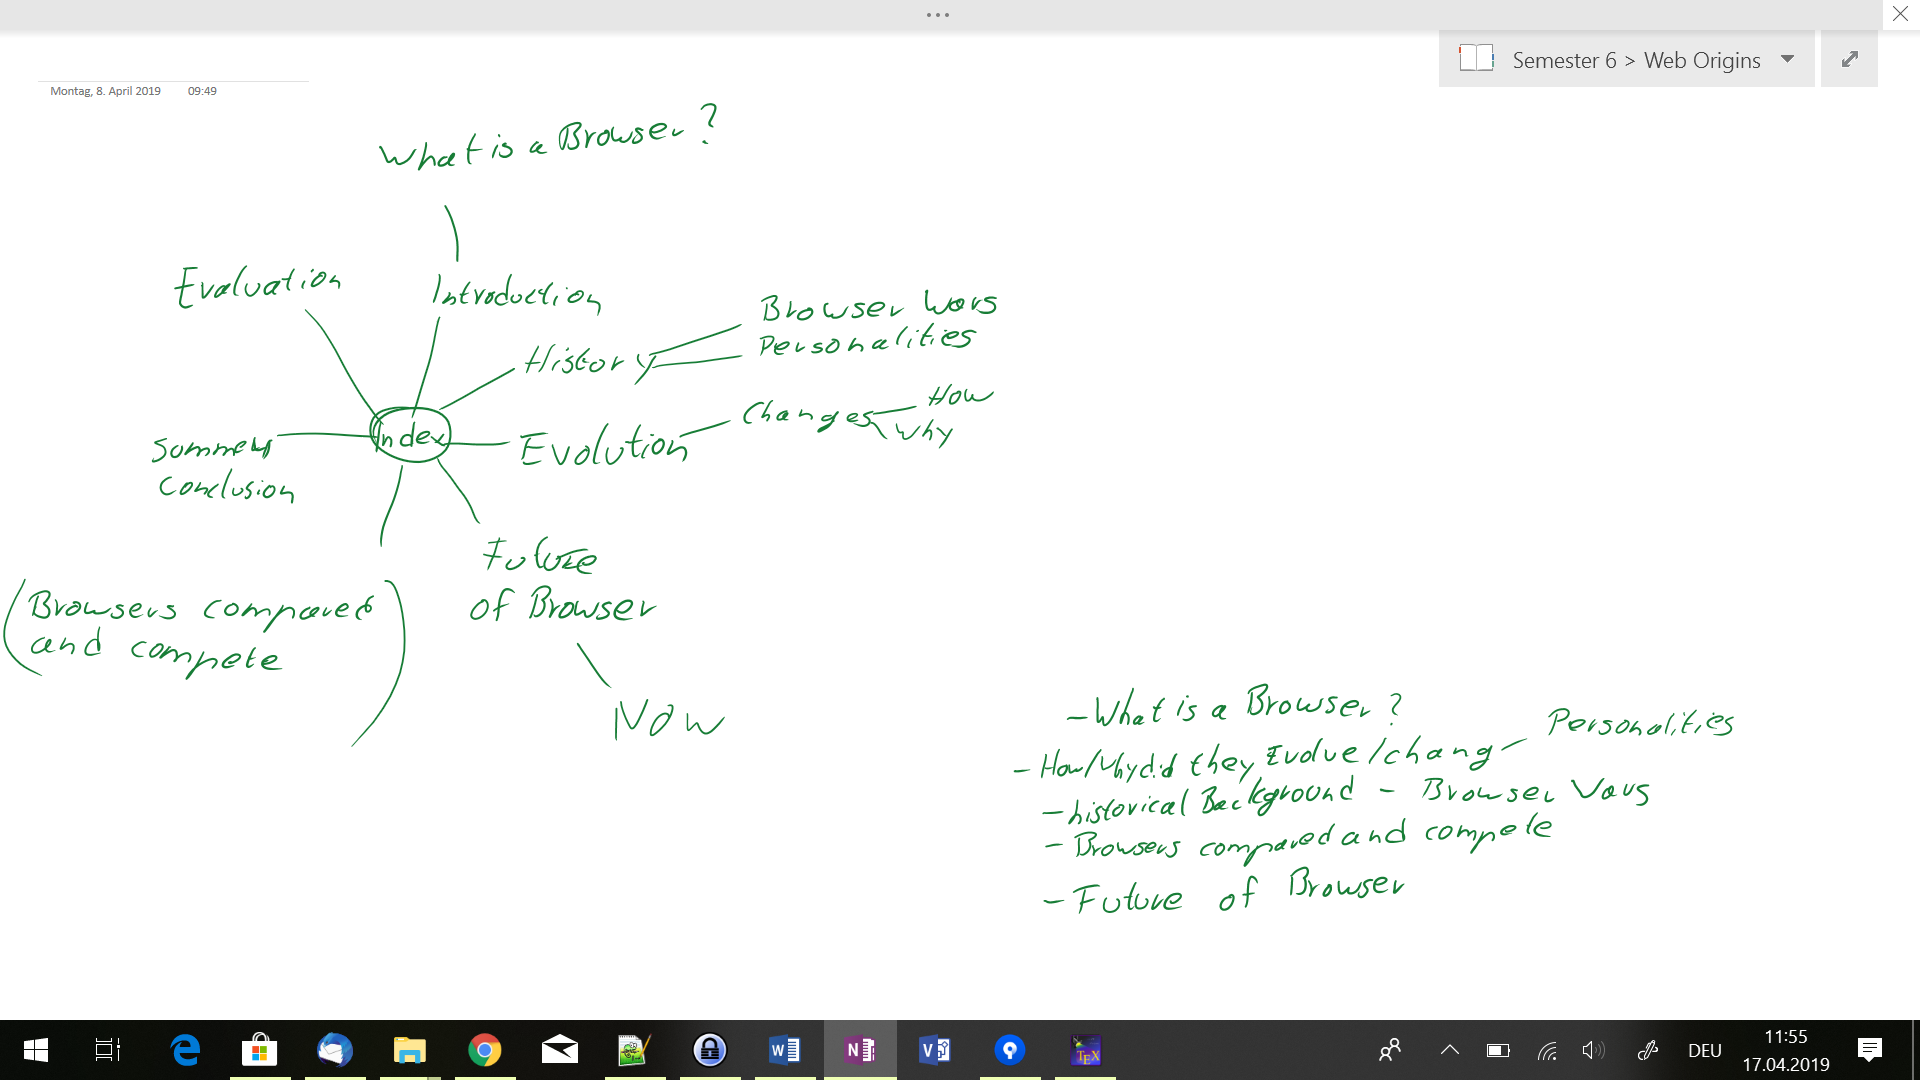 Semester 6 > Web Origins
Montag, 8. April 2019 09:49
What is a Browser?
Evaluation
Introduction
History
Browser Wars
Personalities
Index
Evolution
Changes
How
Why
Summery
Conclusion
Future
of Browser
Now
(Browsers compared
and compete)
- What is a Browser?
- How/Why did they Evolve/chang - Personalities
- historical Background - Browser Wars
- Browsers compared and compete
- Future of Browser
DEU
11:55
17.04.2019